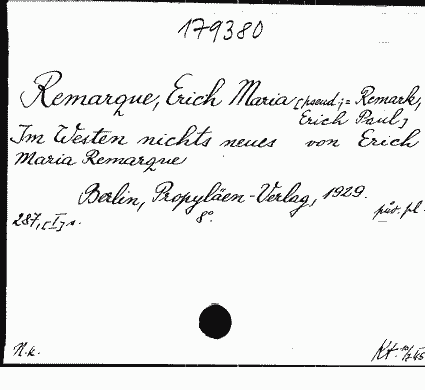 179380
Remarque, Erich Maria [pseud.; = Remark,
Erich Paul]
Im Westen nichts neues von Erich
Maria Remarque
Berlin, Propyläen-Verlag, 1929.
287, [I] s. 8° pův. pl.
N.k. Kt.